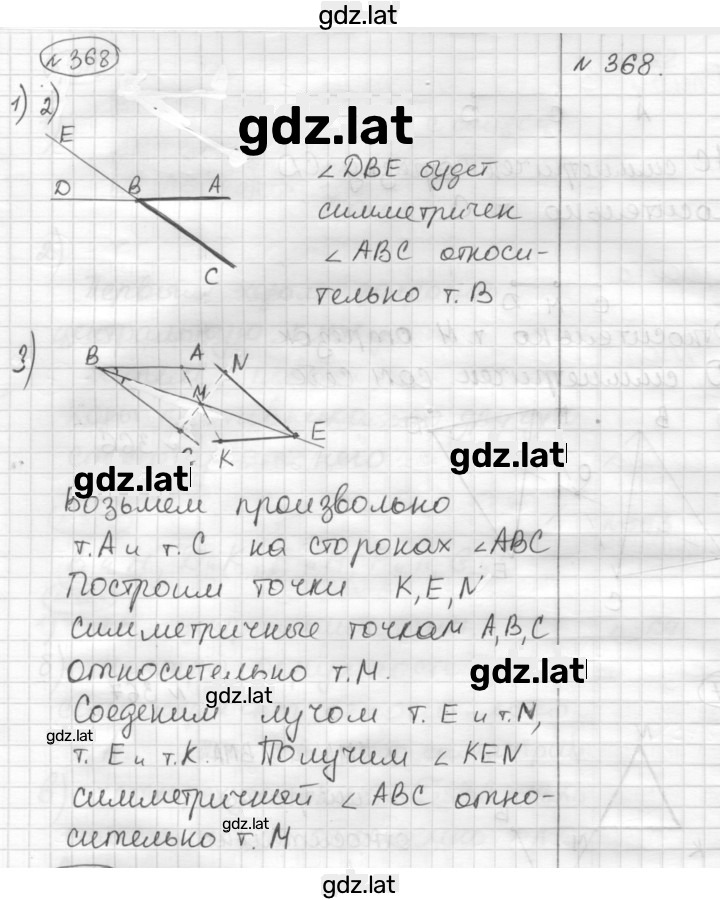 gdz.lat
№ 368
№ 368.
1) 2)
gdz.lat
E
D B A
C
∠DBE будет
симметричен
∠ABC относи-
тельно т. B
3)
B A N
M
K E
gdz.lat
gdz.lat
Возьмем произвольно
т. A и т. C на сторонах ∠ABC
Построим точки K, E, N
симметричные точкам A, B, C
относительно т. M.
gdz.lat
gdz.lat
Соеденим лучом т. E и т. N,
gdz.lat
т. E и т. K. Получим ∠KEN
симметричной ∠ABC отно-
gdz.lat
сительно т. M
gdz.lat